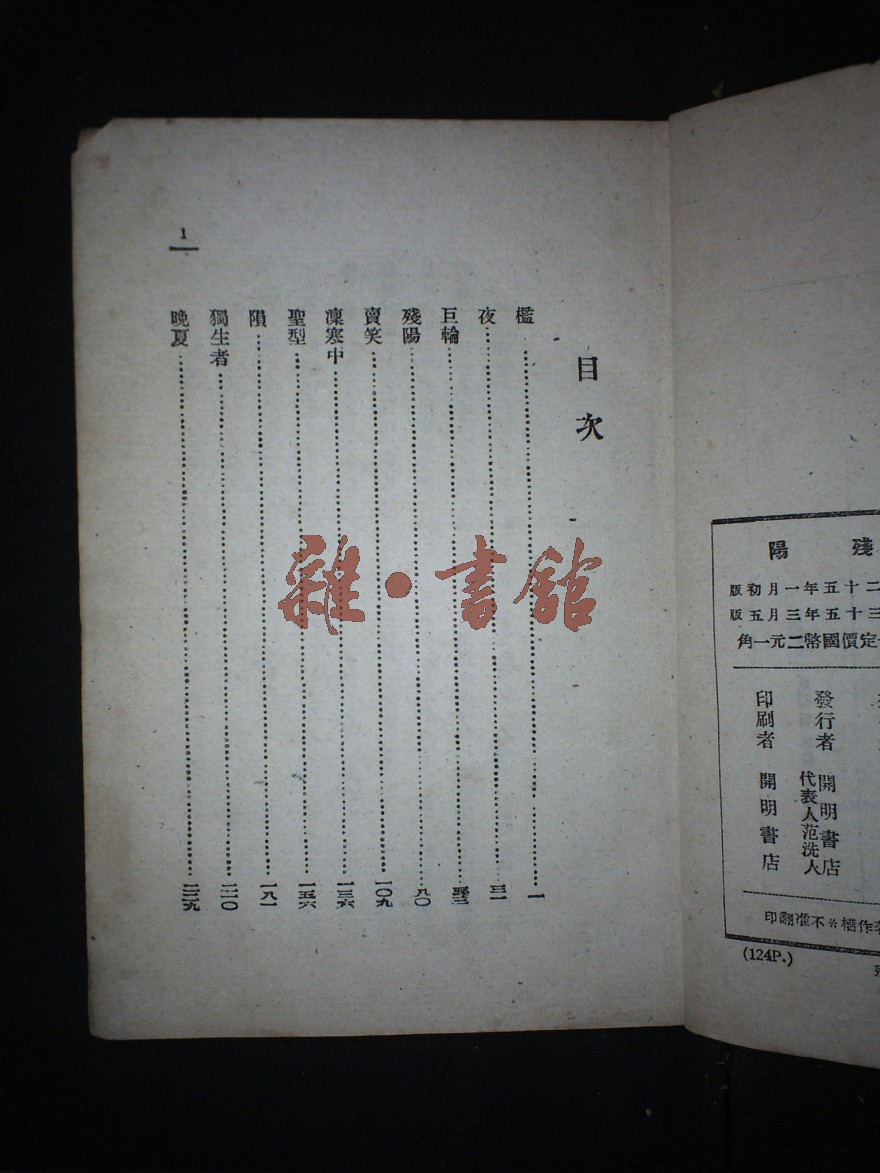 目次
檻……一
夜……三一
巨輪……三
殘陽……八〇
賣笑……一〇九
凜寒中……一三六
聖型……一五六
隕……一八一
獨生者……二一〇
晚夏……二二九
1
殘陽
二十五年一月初版
三十五年三月五版
定價國幣二元一角
發行者 開明書店
代表人范洗人
印刷者 開明書店
作權※不准翻印
(124P.)
雜·書館